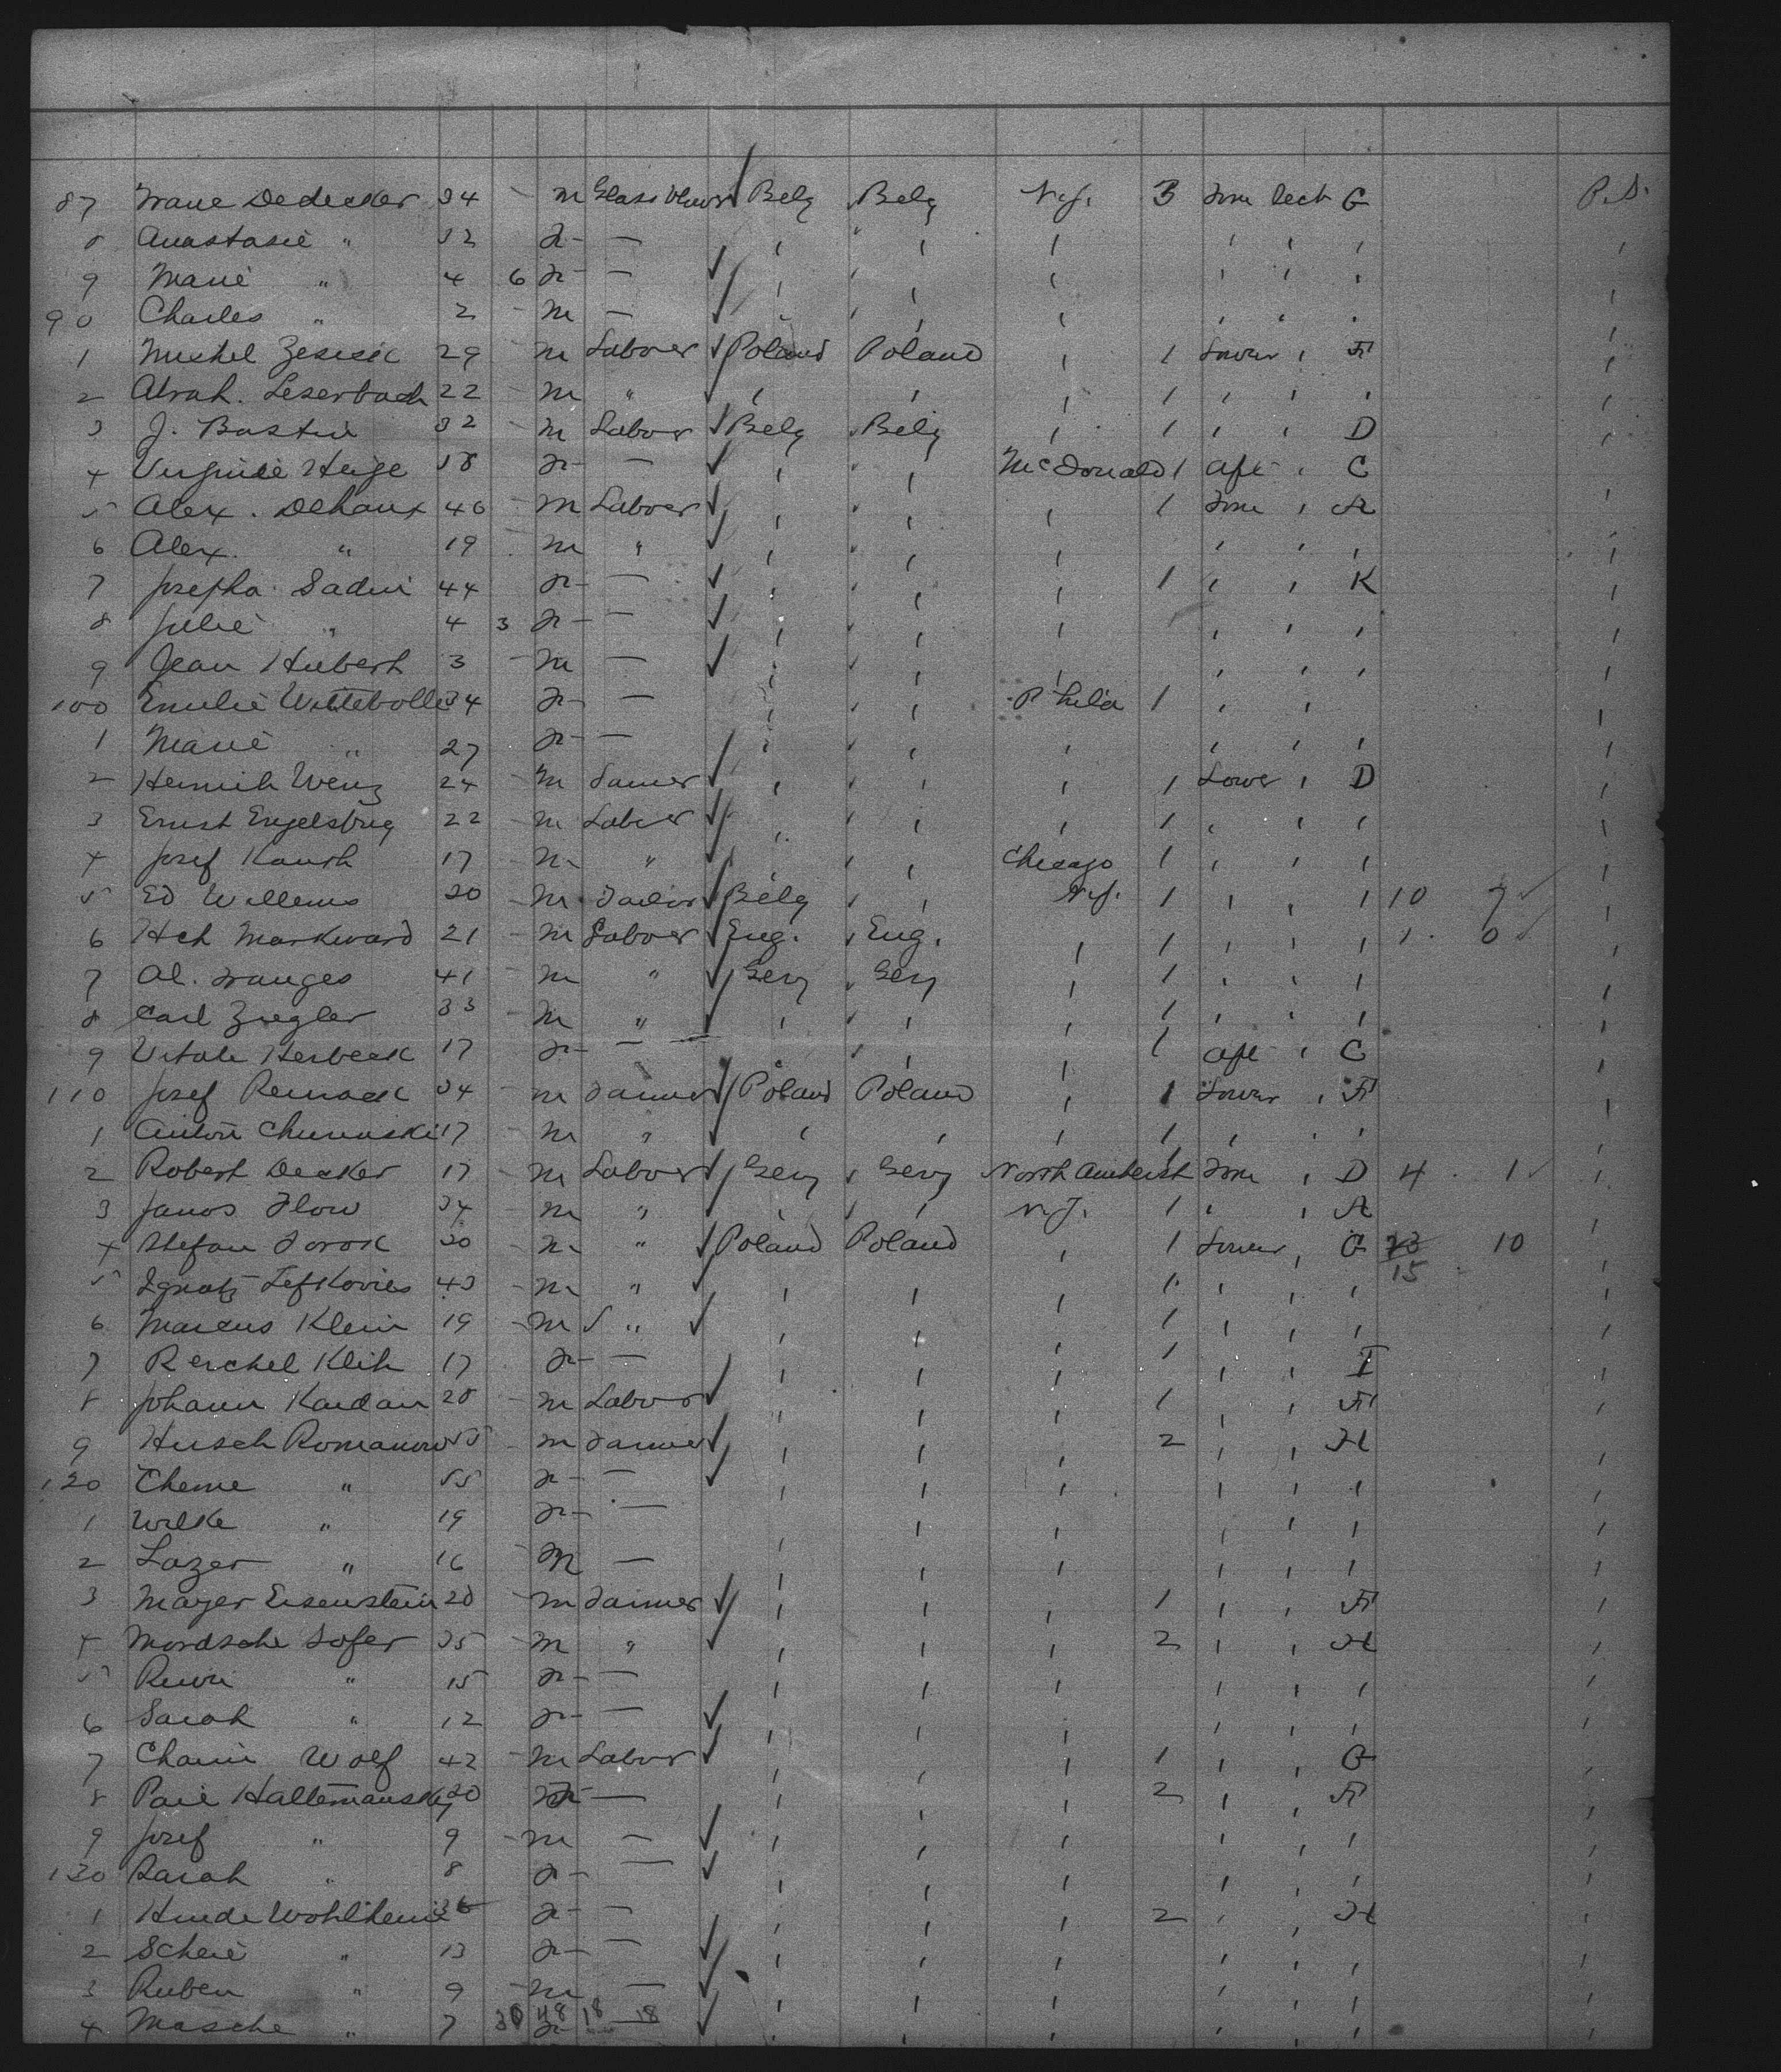 87 Frane Dedecker 34 - m Glass blower Belg Belg N.Y. 3 Fore Deck G P.D.
8 Anastasie " 32 F - — ' ' ' ' ' '
9 Marie " 4 6 F - — ' ' ' ' ' '
90 Charles " 2 - m — ' ' ' ' ' '
1 29 - m Laborer Poland Poland ' 1 Lower ' F
2 Abrah. Leserbach 22 - m " ' ' ' 1 ' ' '
3 J. Bastin 32 - m Labor Belg Belg ' 1 ' ' D
4 Virginie 18 F - — ' ' McDonald 1 Aft ' C
5 Alex. Dehaux 46 - m Laborer ' ' ' 1 Fore ' A
6 Alex. " 19 - m " ' ' ' ' ' '
7 Josepha Sadin 44 F - — ' ' ' 1 ' ' K
8 Julie " 4 3 F - — ' ' ' ' ' '
9 Jean Hubert 3 - m — ' ' ' ' ' '
100 Emelie Wittebolle 34 F - — ' ' Phila 1 ' '
1 Marie " 27 F - — ' ' ' ' ' '
2 Heinrich Wenz 24 - m Farmer ' ' ' 1 Lower ' D
3 Ernst Engelsbrig 22 - m Labor ' ' ' 1 ' ' '
4 Josef 17 - m " ' ' Chicago 1 ' ' '
5 Ed Willems 20 - m Tailor Belg ' N.Y. 1 ' ' ' 10 7
6 Hch Markward 21 - m Laborer Eng. Eng. ' 1 ' ' ' 1 0
7 Al. Franges 41 - m " Gery Gery ' 1 ' ' '
8 Carl Ziegler 33 - m " ' ' ' 1 ' ' '
9 Herbeck 17 F - — ' ' 1 Aft ' C
110 Josef 34 - m Farmer Poland Poland ' 1 Lower ' F
1 Anton 17 - m " ' ' ' 1 ' ' '
2 Robert Decker 17 - m Laborer Gery Gery North Amherst Fore ' D 4 1
3 Janos Flow 34 - m " ' ' N.Y. 1 ' ' A
4 Stefan Torok 20 - m " Poland Poland ' 1 Lower ' G 13 10
15
5 Ignatz Lefkovics 43 - m " ' ' ' 1 ' ' '
6 Marcus Klein 19 - m " ' ' ' 1 ' ' '
7 Klih 17 F - — ' ' ' 1 ' ' I
8 Johann Kardan 28 - m Labor ' ' ' 1 ' ' F
9 Hirsch Romanow 55 - m Farmer ' ' ' 2 ' ' H
120 Cheme " 55 F - — ' ' ' ' ' '
1 Wilke " 19 F - — ' ' ' ' ' '
2 Lazer " 16 M — ' ' ' ' ' '
3 Mayer Eisenstein 20 - m Farmer ' ' ' 1 ' ' F
4 Mordsche Sofer 35 - m " ' ' ' 2 ' ' H
5 " 15 F - — ' ' ' ' ' '
6 Sarah " 12 F - — ' ' ' ' ' '
7 Chaim Wolf 42 - m Labor ' ' ' 1 ' ' G
8 20 F — ' ' ' 2 ' ' F
9 Josef " 9 - m — ' ' ' ' ' '
130 Sarah " 8 F - — ' ' ' ' ' '
1 Hinde 36 F - — ' ' ' 2 ' ' H
2 Scheie " 13 F - — ' ' ' ' ' '
3 Ruben " 9 - m — ' ' ' ' ' '
4 Masche " 7 30 48 18 18 F — ' ' ' ' ' '